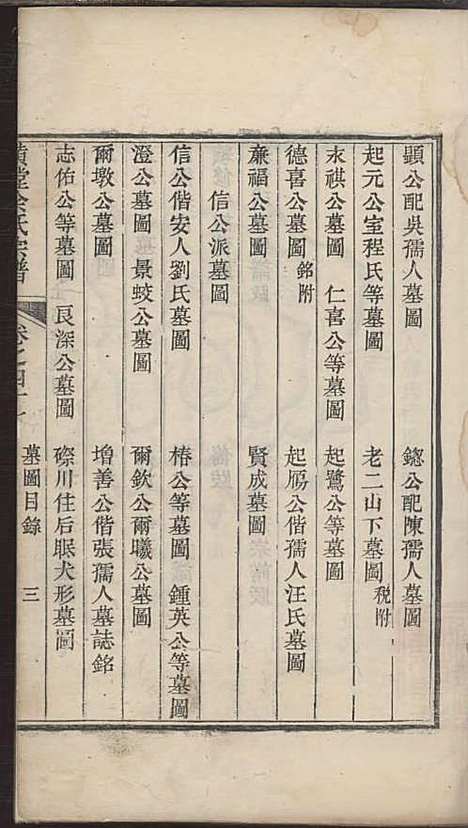 顯公配吳孺人墓圖　鍃公配陳孺人墓圖
起元公室程氏等墓圖　老二山下墓圖 稅附
永祺公墓圖　仁喜公等墓圖　起鷺公等墓圖
德喜公墓圖 銘附　起鴈公偕孺人汪氏墓圖
亷福公墓圖　賢成墓圖
信公派墓圖
信公偕安人劉氏墓圖　椿公等墓圖　鍾英公等墓圖
澄公墓圖　景蛟公墓圖　爾欽公爾曦公墓圖
爾墩公墓圖　增善公偕張孺人墓誌銘
志佑公等墓圖　艮深公墓圖　磜川住后眠犬形墓圖
堂余氏宗譜　卷之四十　墓圖目錄　三